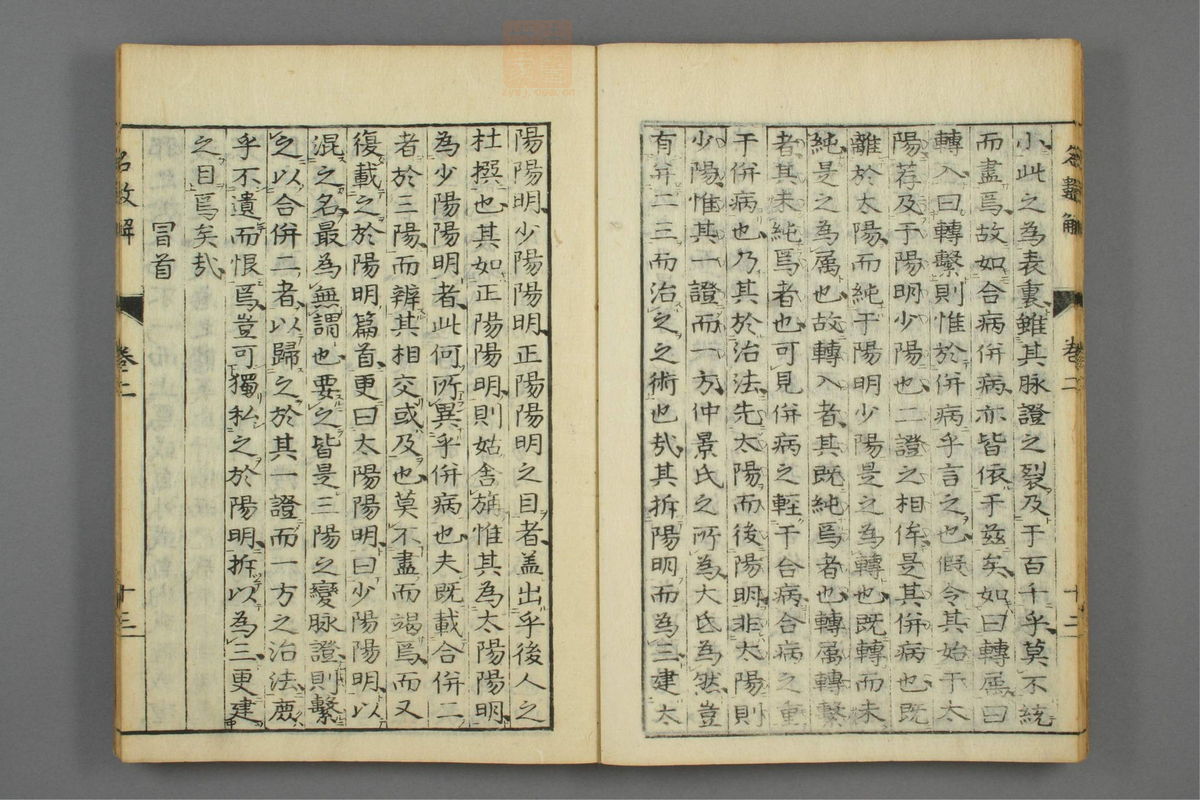 小此之為表裏雖其脉證之裂及于百千乎莫不統
而盡焉故如合病併病亦皆依乎茲矣如曰轉属曰
轉入曰轉繫則惟於併病乎言之也假令其始于太
陽荐及于陽明少陽也二證之相侔是其併病也既
離於太陽而純于陽明少陽是之為轉也既轉而未
純是之為属也故轉入者其既純焉者也轉属轉繫
者其未純焉者也可見併病之輕于合病合病之重
于併病也乃其於治法先太陽而後陽明非太陽則
少陽惟其一證而一方仲景氏之所為大氐為然豈
有并二三而治之之術也哉其拆陽明而為三建太
卷二
十二
陽陽明少陽陽明正陽陽明之目者盖出乎後人之
杜撰也其如正陽陽明則姑舎旃惟其為太陽陽明
為少陽陽明者此何所異乎併病也夫既載合併二
者於三陽而辨其相交或及也莫不盡而竭焉而又
復載之於陽明篇首更曰太陽陽明曰少陽陽明以
混之名最為無謂也要之皆是三陽之變脉證則繫
之以合併二者以歸之於其一證而一方之治法庶
乎不遺而恨焉豈可獨私之於陽明拆以為三更建
之目焉矣哉
冒首
名數解
卷二
十三